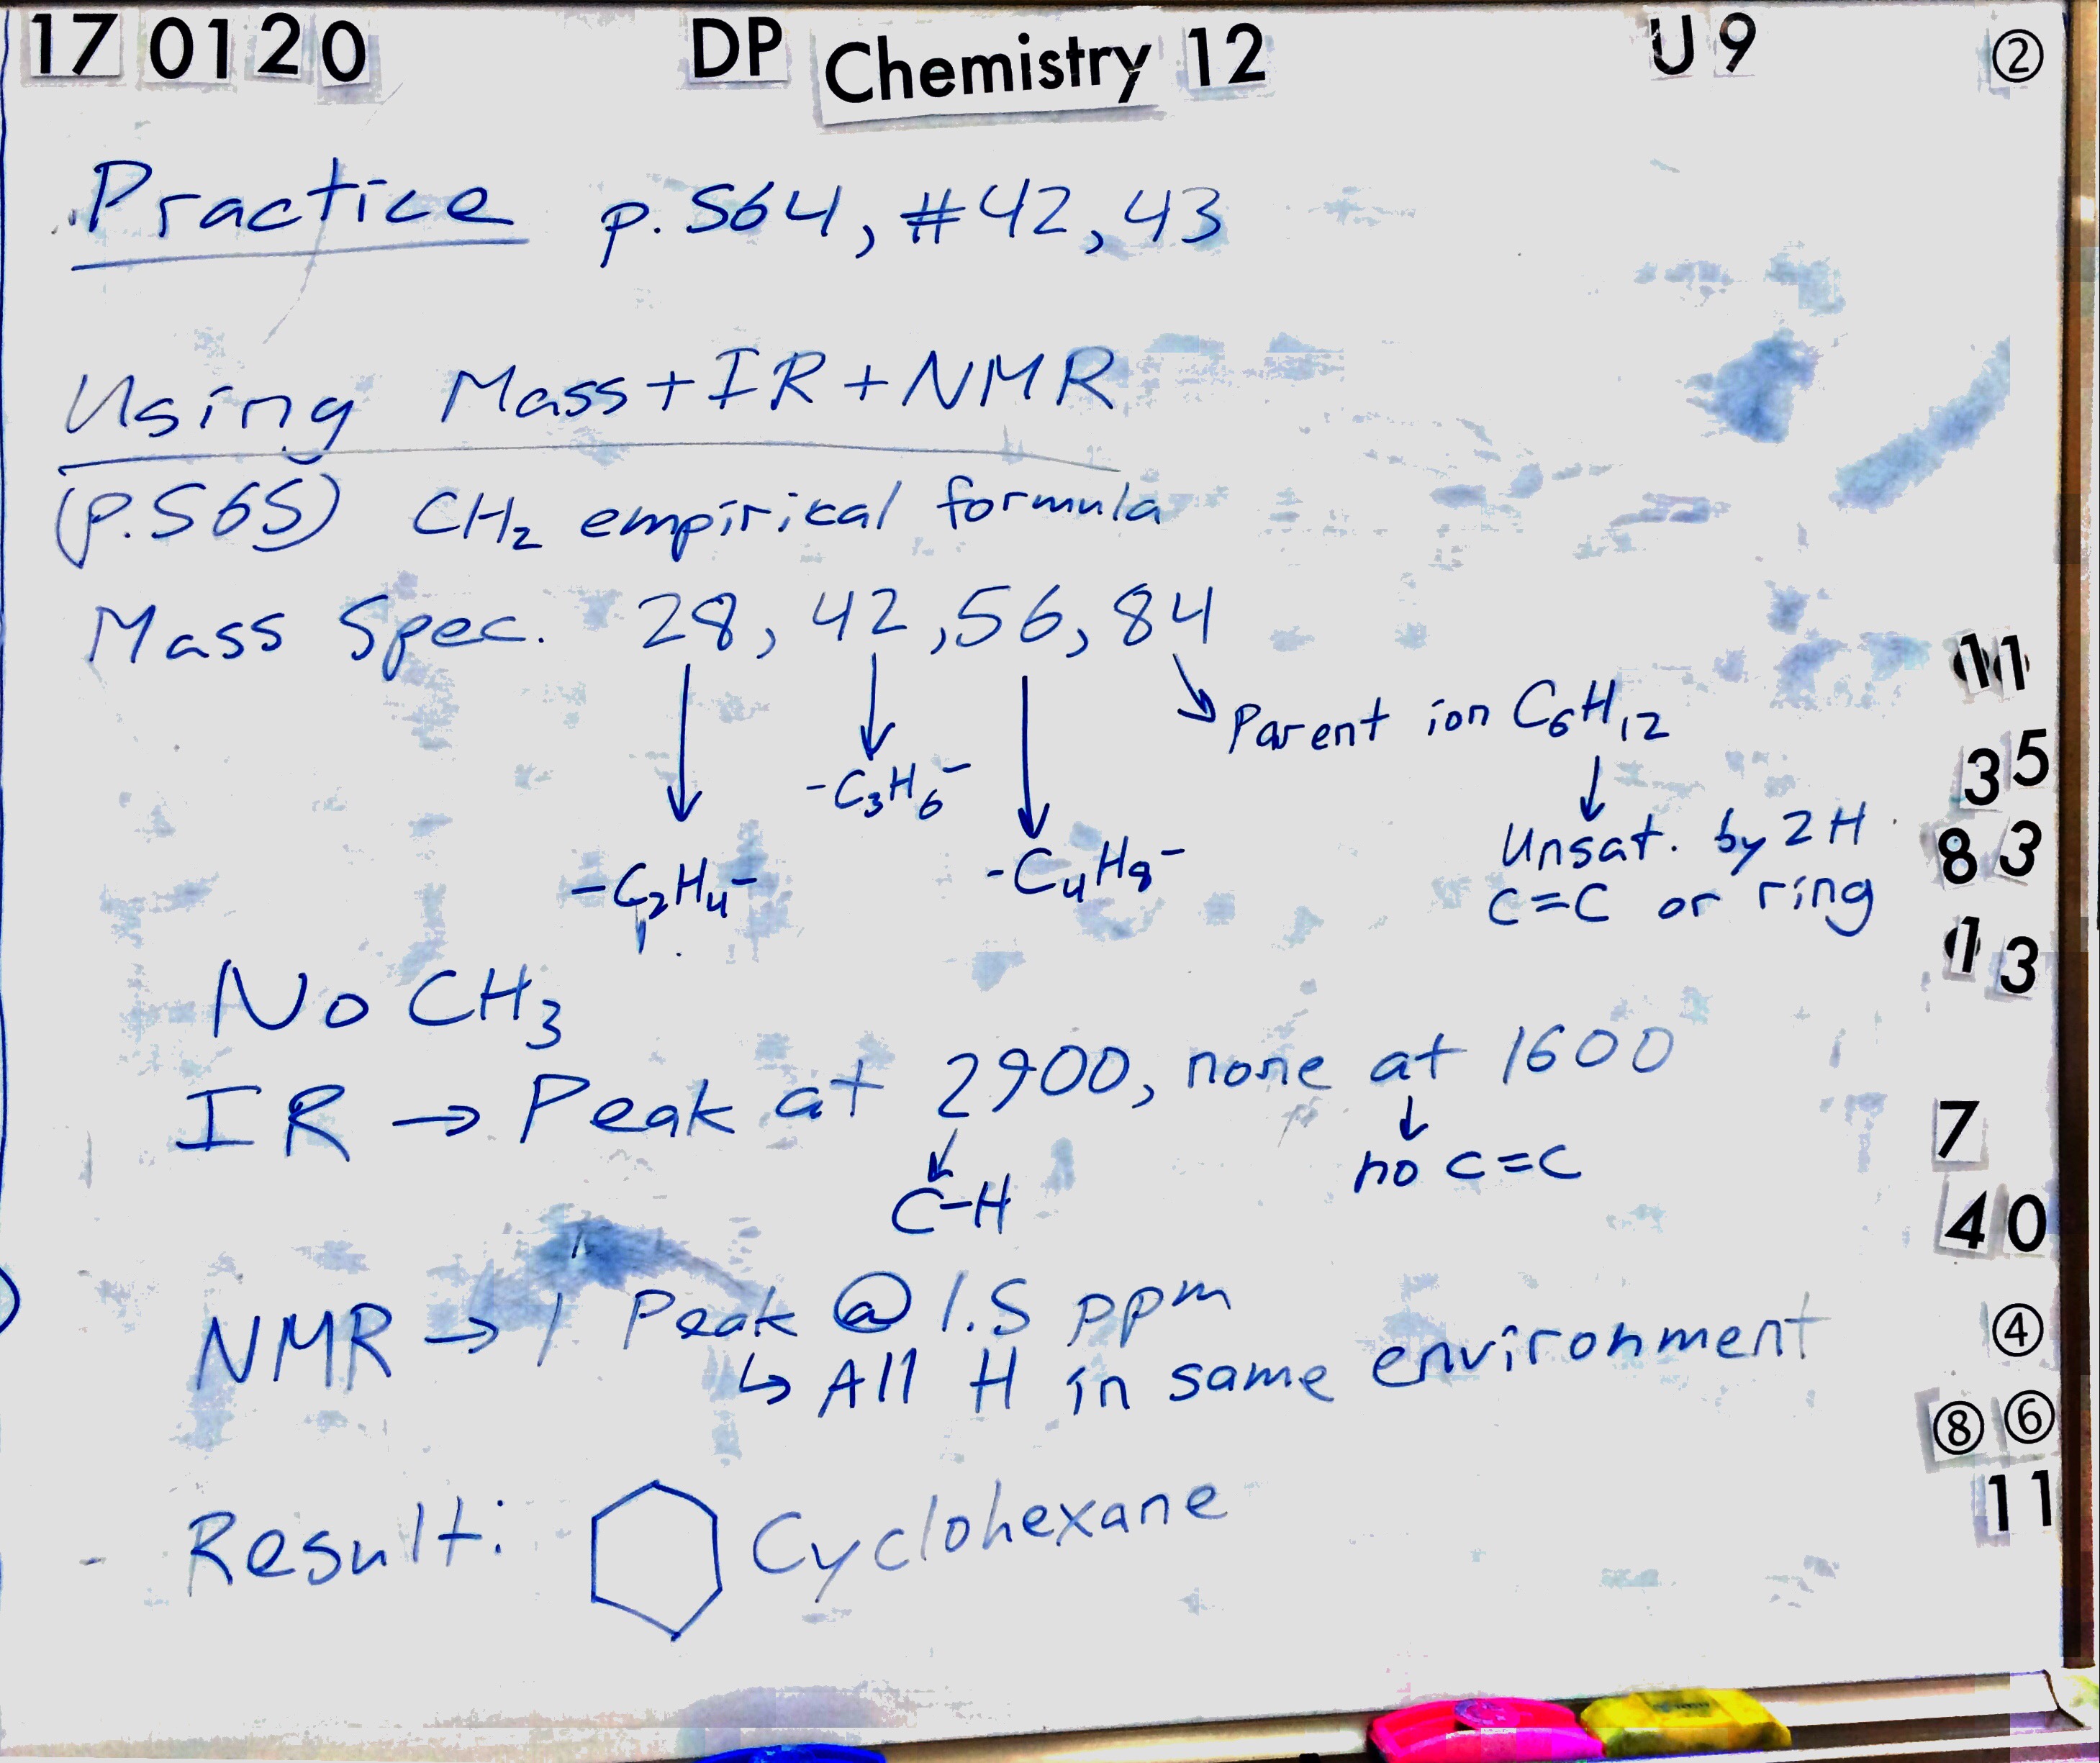 17 01 20 DP Chemistry 12 U9 ②
Practice p.564, #42, 43
Using Mass+IR+NMR
(p.565) CH₂ empirical formula
Mass Spec. 28, 42, 56, 84
Parent ion C₆H₁₂
-C₃H₆-
Unsat. by 2H
C=C or ring
-C₂H₄- -C₄H₈-
No CH₃
IR → Peak at 2900, none at 1600
C-H no C=C
NMR → 1 Peak @ 1.5 ppm
↳ All H in same environment
Result: Cyclohexane
11
35
83
13
7
40
④
⑧⑥
11